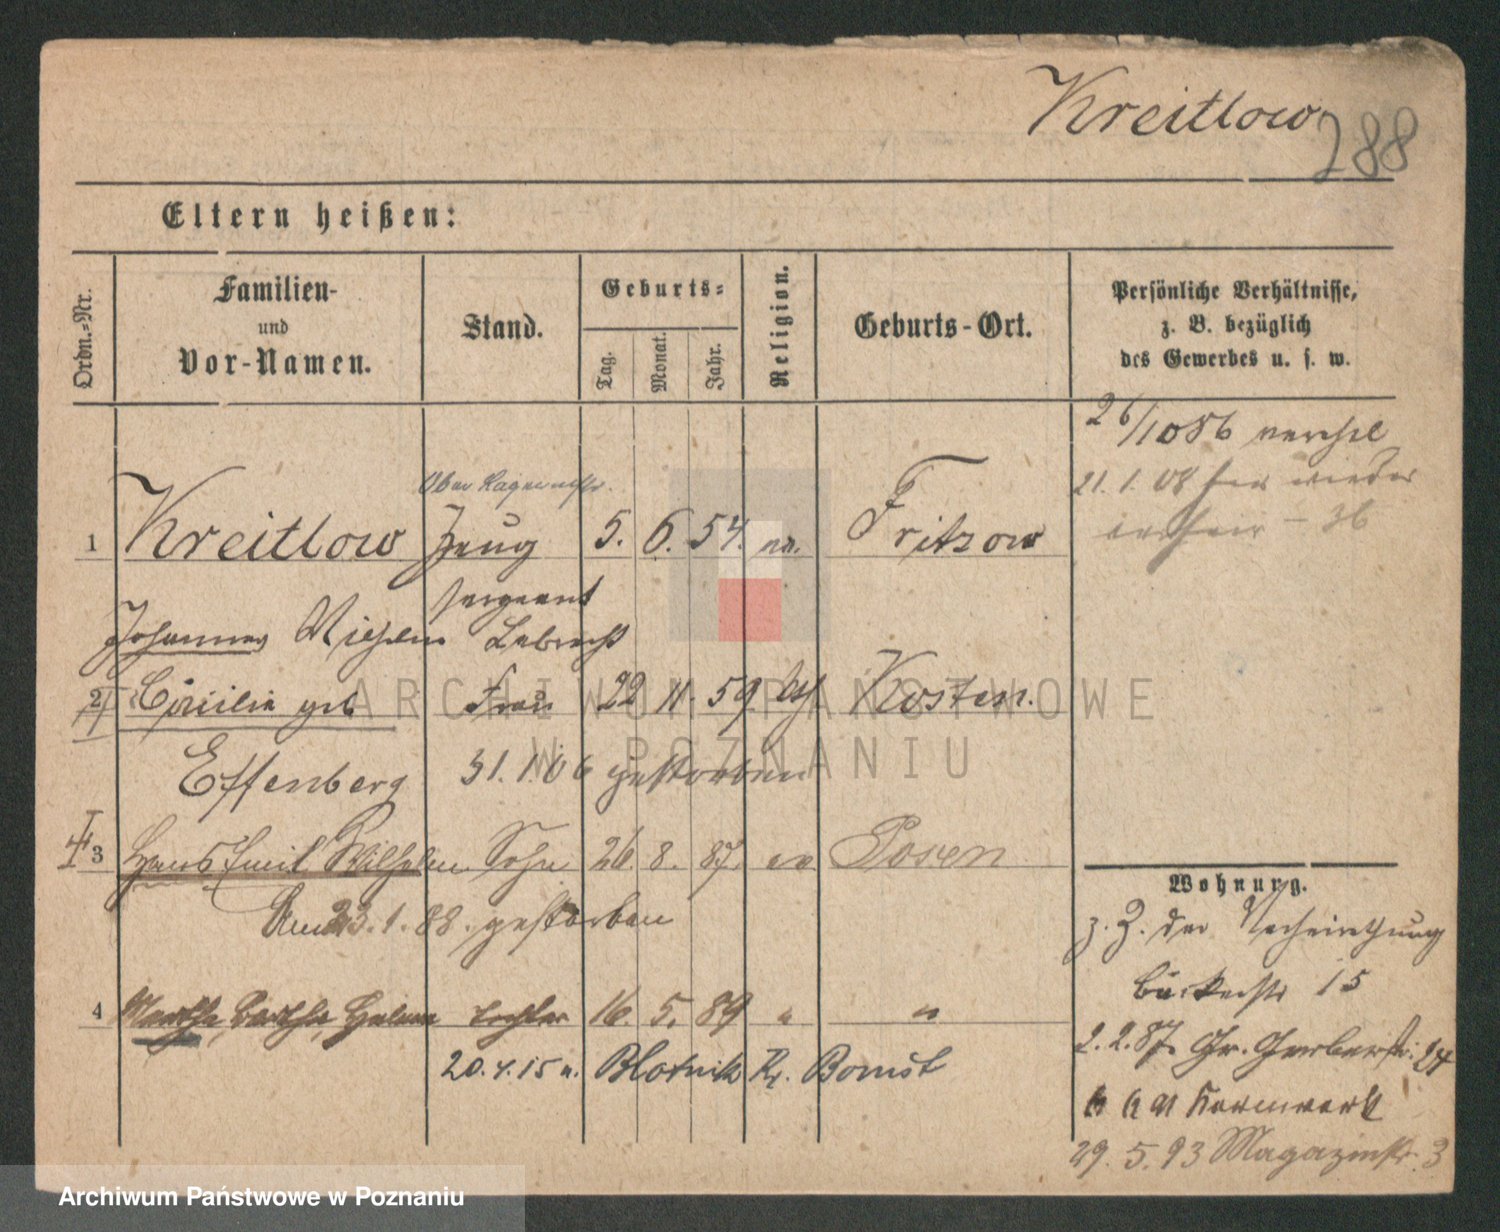 Kreitlow
288
Eltern heißen:
Ordn.-Nr.
Familien-
und
Vor-Namen.
Stand.
Geburts-
Tag.
Monat.
Jahr.
Religion.
Geburts-Ort.
Persönliche Verhältnisse,
z. B. bezüglich
des Gewerbes u. s. w.
26/10 86
21. 1. 08
1 Kreitlow Zeug 5. 6. 54. ev. Fritzow
sergeant
Johannes Wilhelm Lebrecht
2 Cäcilie geb Frau 22 11. 59. Kosten.
Effenberg 31. 1. 06 gestorben
3 Hans Emil Wilhelm Sohn 26. 8. 87. ev Posen
Am 23. 1. 88. gestorben
4 Martha, Bertha, Helene Tochter 16. 5. 89 " "
20. 4. 15 n. Blotnik Kr. Bomst
Wohnung.
z. Z. der Verheirathung
Bäckerstr 15
2. 2. 87. Gr. Gerberstr. 24
Kernwerk
29. 5. 93 Magazinstr. 3
ARCHIWUM PAŃSTWOWE
W POZNANIU
Archiwum Państwowe w Poznaniu